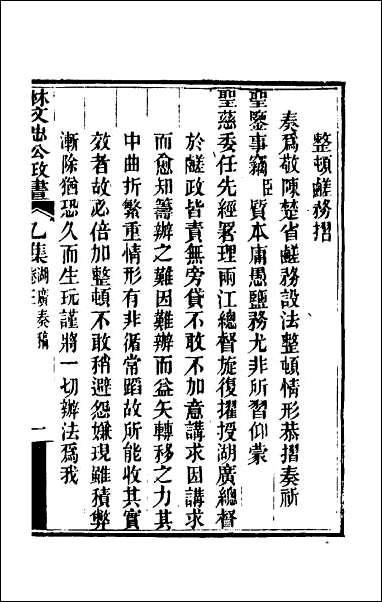 整頓鹺務摺
奏爲敬陳楚省鹺務設法整頓情形恭摺奏祈
聖鑒事竊臣質本庸愚鹽務尤非所習仰蒙
聖慈委任先經署理兩江總督旋復擢授湖廣總督
於鹺政皆責無旁貸不敢不加意講求因講求
而愈知籌辦之難因難辦而益矢轉移之力其
中曲折繁重情形有非循常蹈故所能收其實
效者故必倍加整頓不敢稍避怨嫌現雖積弊
漸除猶恐久而生玩謹將一切辦法爲我
林文忠公政書 乙集 湖廣奏稿 卷三 一